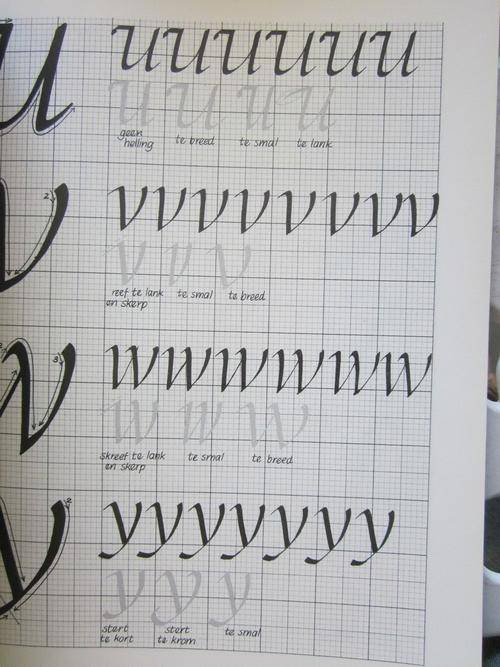 u uuuuuu
u u u u
geen helling te breed te smal te lank
2
v vvvvvvvv
v v v
reef te lank te smal te breed
en skerp
3
w wwwwww
w w w
skreef te lank te smal te breed
en skerp
2
y yyyyyyy
y y y
stert te kort stert te krom te smal